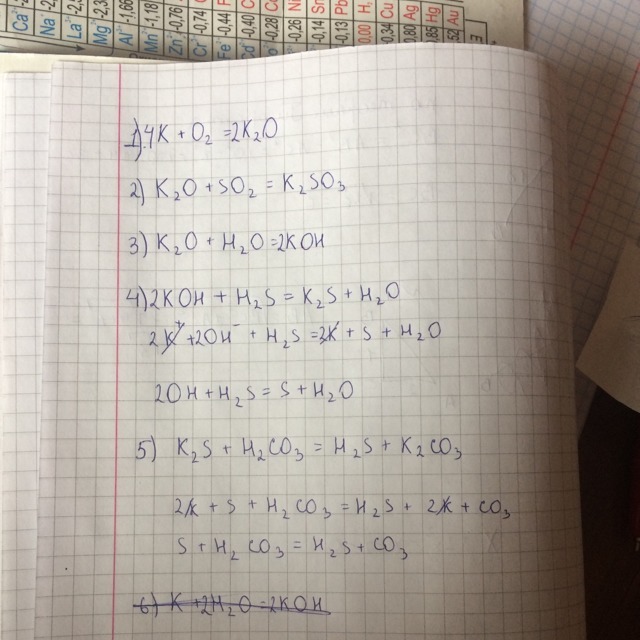 Ca Na -2, La -2, Mg -2,3 Al -1,66 Mn -1,18 Zn -0,76 Cr -0,74 Fe -0,44 Cd -0,40 Co -0,28 Ni -0,26 Sn -0,14 Pb -0,13 H, 0,00 Cu 0,34 Ag 0,80 Hg 0,85 Au
1) 4K + O₂ = 2K₂O
2) K₂O + SO₂ = K₂SO₃
3) K₂O + H₂O = 2KOH
4) 2KOH + H₂S = K₂S + H₂O
2K⁺ + 2OH⁻ + H₂S = 2K + S + H₂O
2OH + H₂S = S + H₂O
5) K₂S + H₂CO₃ = H₂S + K₂CO₃
2K + S + H₂CO₃ = H₂S + 2K + CO₃
S + H₂CO₃ = H₂S + CO₃
6) K + 2H₂O = 2KOH